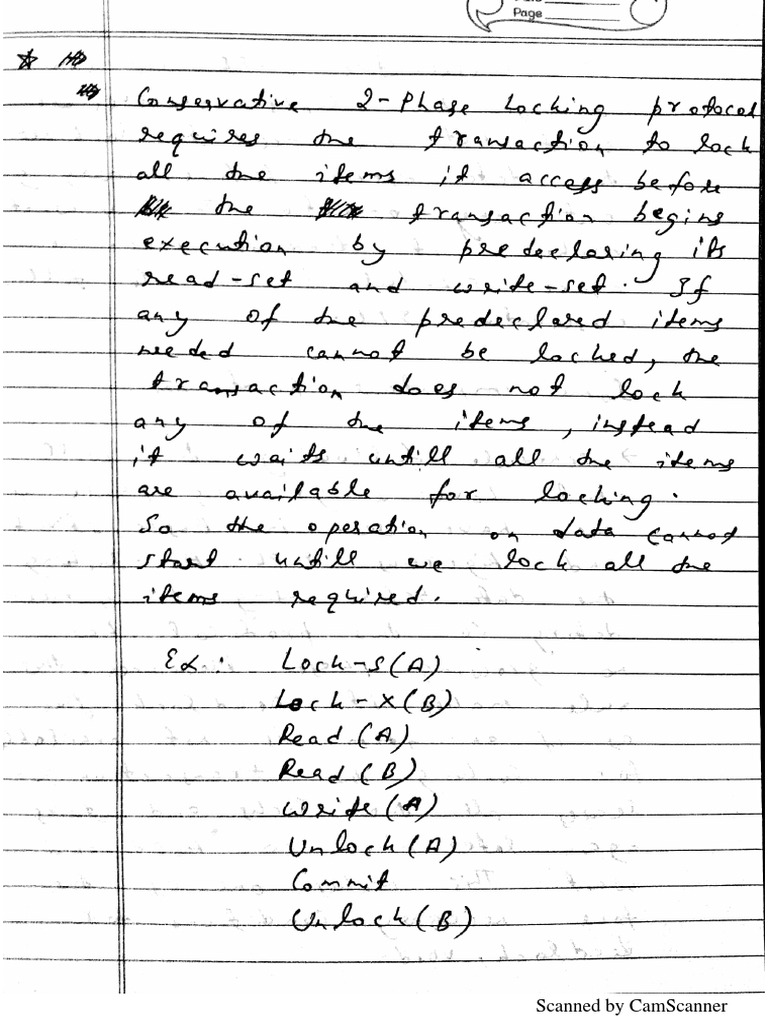 Page
Conservative 2-Phase Locking protocol
requires the transaction to lock
all the items it access before
the transaction begins
execution by predeclaring its
read-set and write-set. If
any of the predeclared items
needed cannot be locked, the
transaction does not lock
any of the items, instead
it waits untill all the items
are available for locking.
So the operation on data cannot
start untill we lock all the
items required.
Ex: Lock-S(A)
Lock-X(B)
Read(A)
Read(B)
Write(A)
Unlock(A)
Commit
Unlock(B)
Scanned by CamScanner